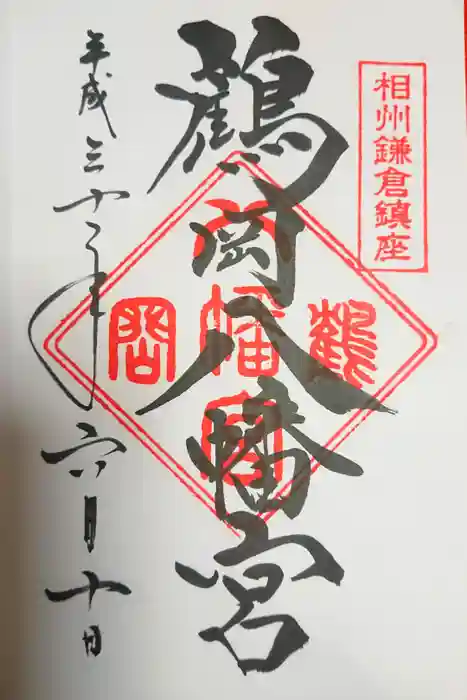 相州鎌倉鎮座
鶴岡八幡宮
鶴
八幡宮
岡
平成三十年六月十日